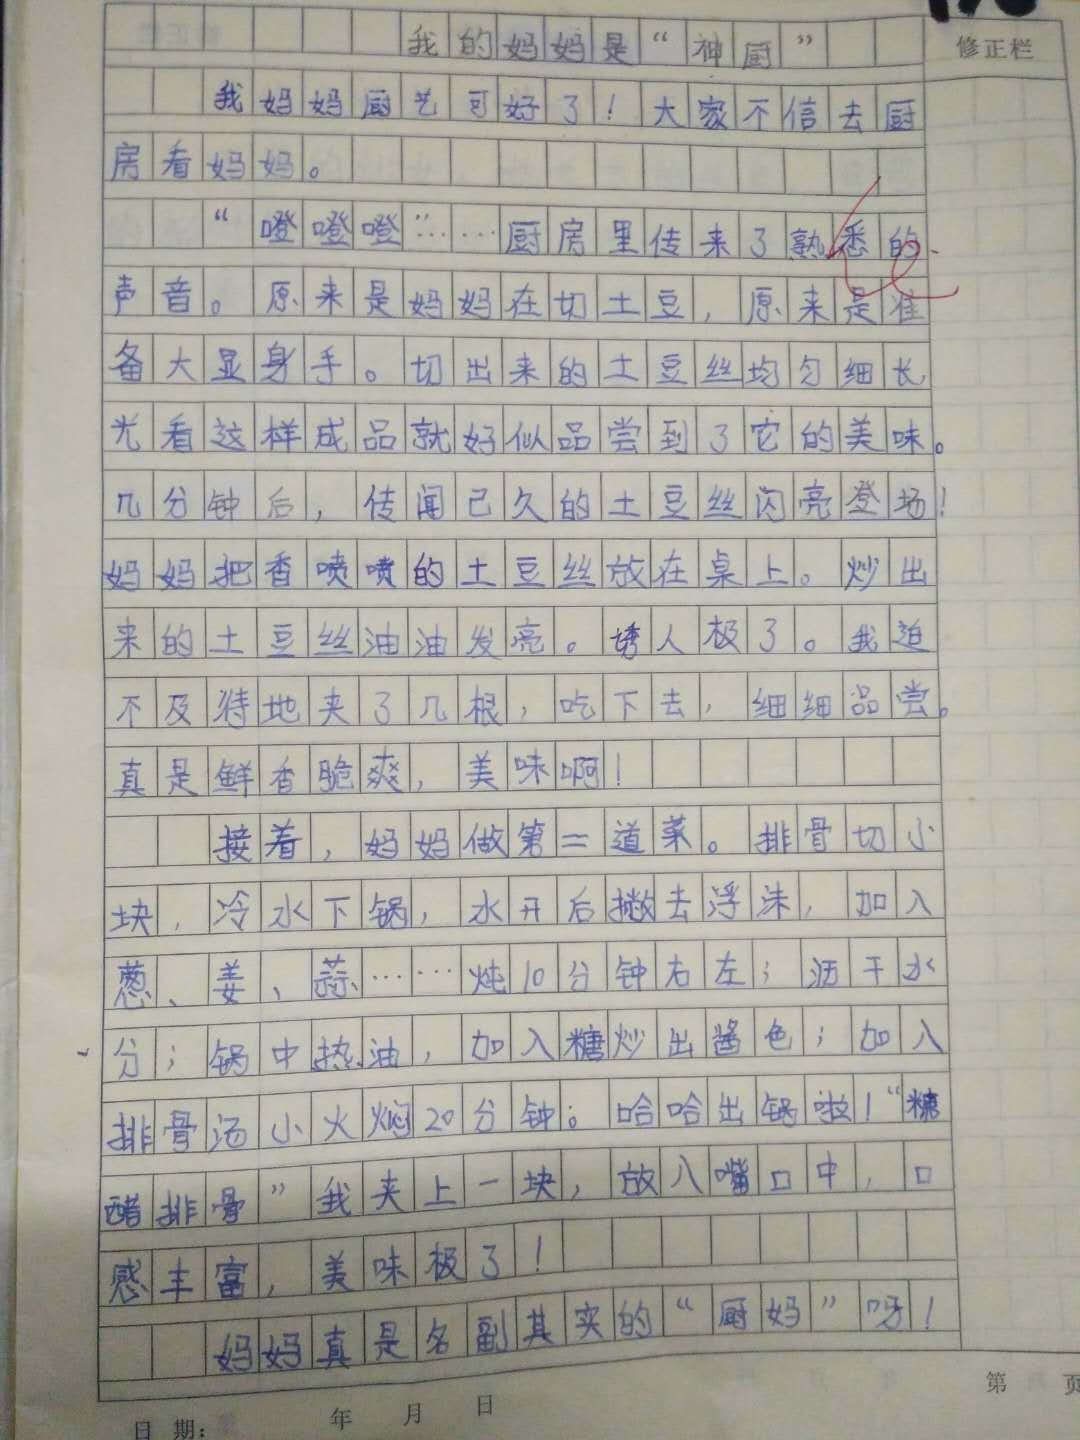 我的妈妈是“神厨”
修正栏
我妈妈厨艺可好了！大家不信去厨
房看妈妈。
“噔噔噔”……厨房里传来了熟悉的
声音。原来是妈妈在切土豆，原来是准
备大显身手。切出来的土豆丝均匀细长，
光看这样成品就好似品尝到了它的美味。
几分钟后，传闻已久的土豆丝闪亮登场！
妈妈把香喷喷的土豆丝放在桌上。炒出
来的土豆丝油油发亮。诱人极了。我迫
不及待地夹了几根，吃下去，细细品尝。
真是鲜香脆爽，美味啊！
接着，妈妈做第二道菜。排骨切小
块，冷水下锅，水开后撇去浮沫，加入
葱、姜、蒜……炖10分钟右左；沥干水
分；锅中热油，加入糖炒出酱色；加入
排骨汤小火焖20分钟。哈哈出锅啦！“糖
醋排骨”我夹上一块，放入嘴口中，口
感丰富，美味极了！
妈妈真是名副其实的“厨妈”呀！
第 页
日 期： 年 月 日